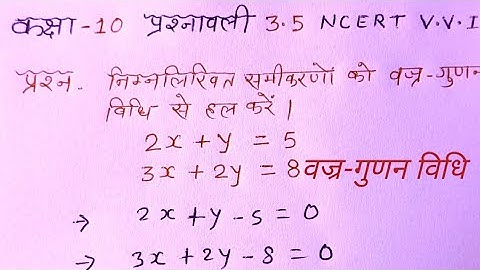 कक्षा-10 प्रश्नावली 3.5 NCERT V.V.I
प्रश्न. निम्नलिखित समीकरणों को वज्र-गुणन
विधि से हल करें।
2x + y = 5
3x + 2y = 8 वज्र-गुणन विधि
→ 2x + y - 5 = 0
→ 3x + 2y - 8 = 0